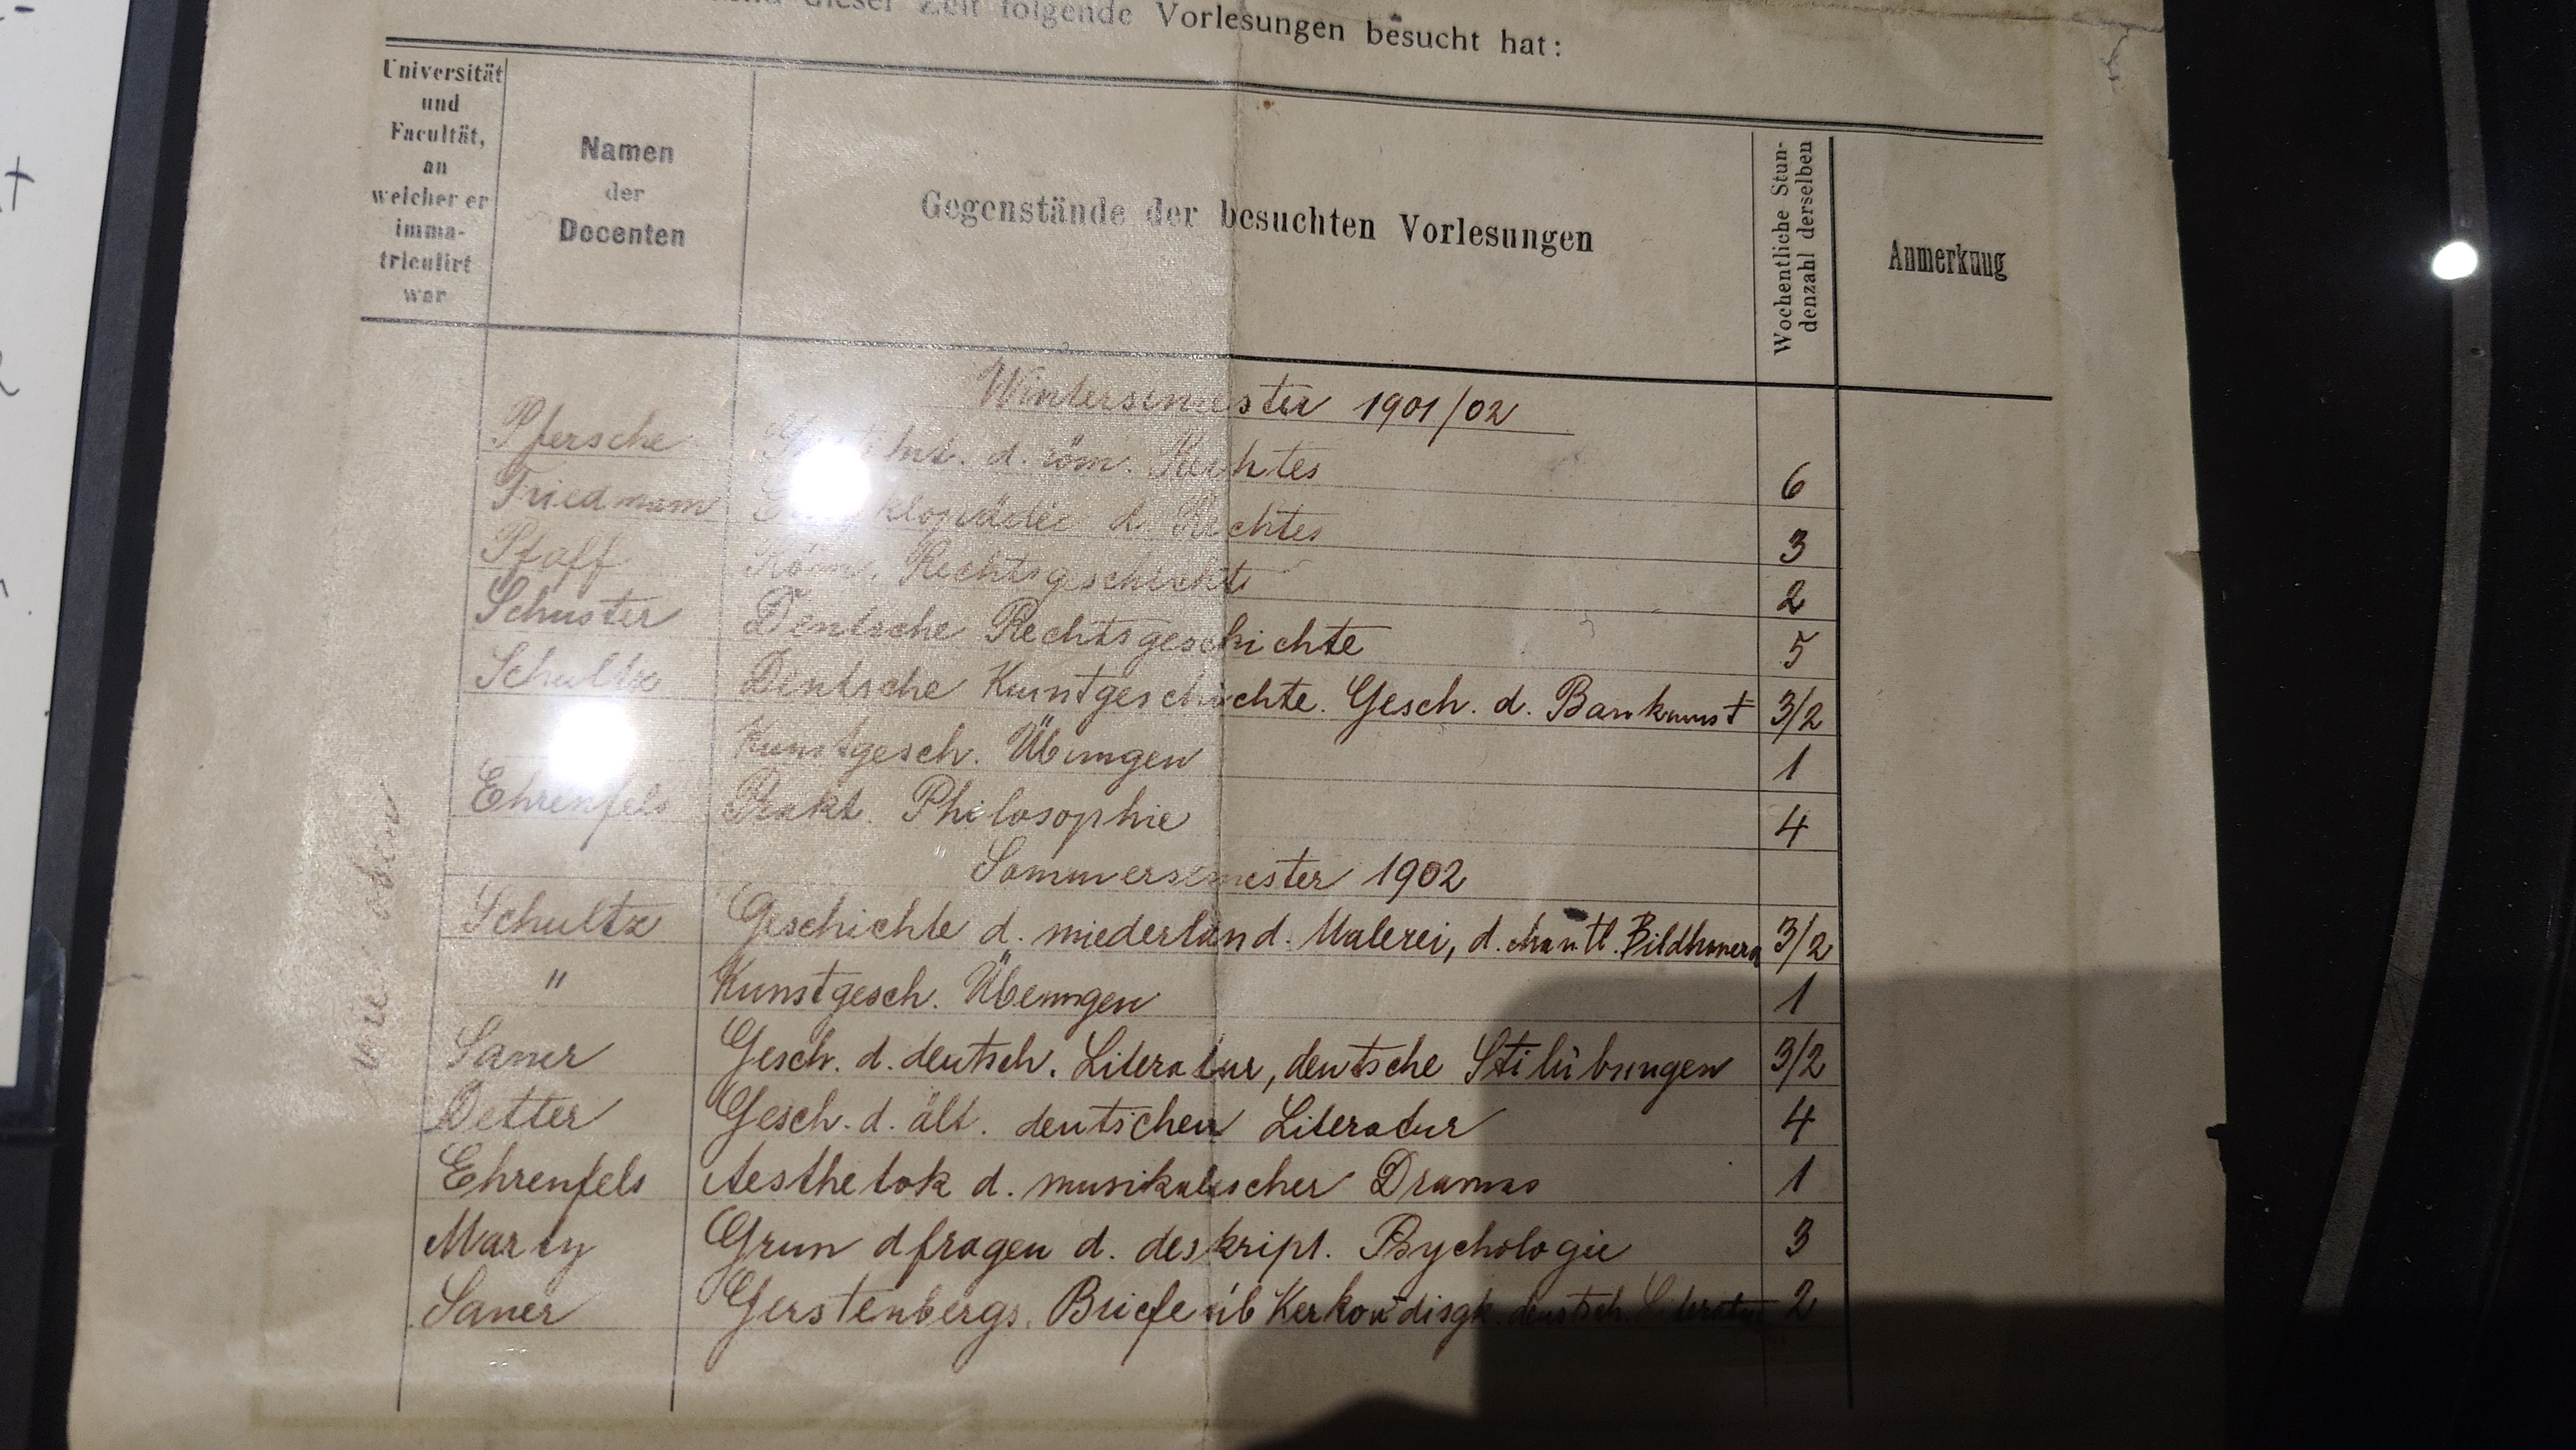 dieser Zeit folgende Vorlesungen besucht hat:
Universität
und
Facultät,
an
welcher er
imma-
triculirt
war
Namen
der
Docenten
Gegenstände der besuchten Vorlesungen
Wochentliche Stun-
denzahl derselben
Anmerkung
Wintersemester 1901/02
Pfersche d. röm. Rechtes 6
Friedmann d. Rechtes 3
Pfaff Röm. Rechtsgeschichte 2
Schuster Deutsche Rechtsgeschichte 5
Schultz Deutsche Kunstgeschichte. Gesch. d. Baukunst 3/2
Kunstgesch. Übungen 1
Ehrenfels Prakt. Philosophie 4
Sommersemester 1902
Schultz Geschichte d. niederländ. Malerei, d. Bildhauerei 3/2
" Kunstgesch. Übungen 1
Sauer Gesch. d. deutsch. Literatur, deutsche Stilübungen 3/2
Detter Gesch. d. ält. deutschen Literatur 4
Ehrenfels Aesthetok d. musikalischer Dramas 1
Marty Grundfragen d. deskript. Psychologie 3
Sauer Gerstenbergs. Briefe üb deutsch. 2
wie oben